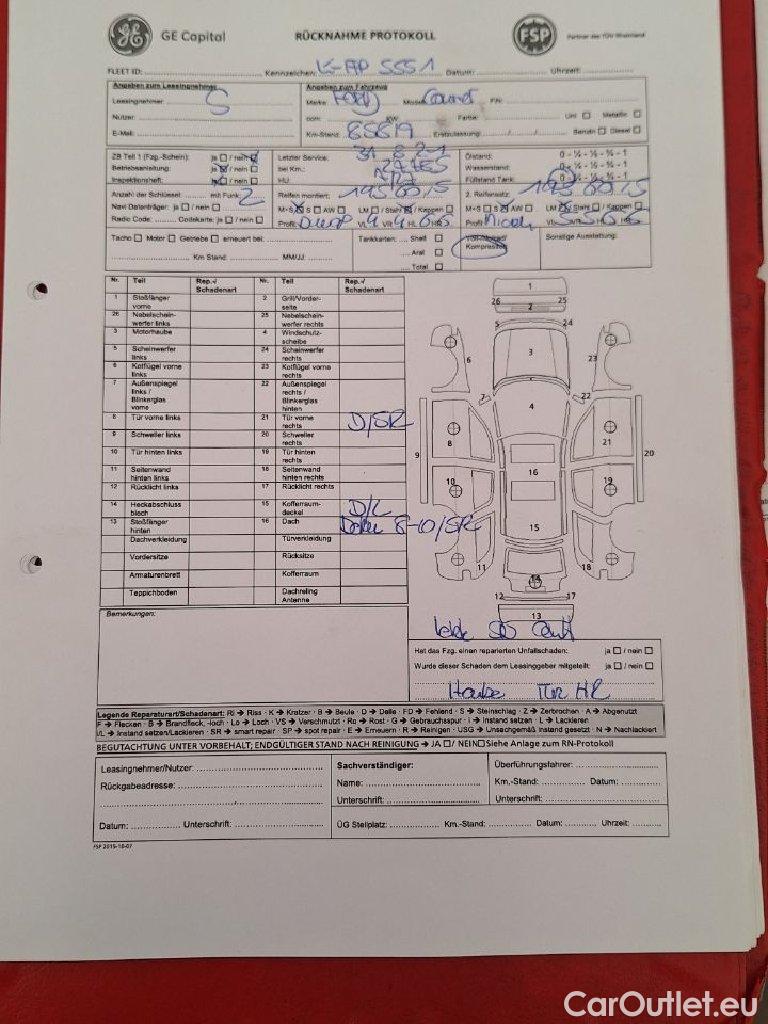 GE Capital RÜCKNAHME PROTOKOLL FSP Partner des TÜV Rheinland
FLEET ID: Kennzeichen: Datum: Uhrzeit:
Angaben zum Leasingnehmer Angaben zum Fahrzeug
Leasingnehmer: Marke Ford Modell FIN:
Nutzer: ccm: KW Farbe: Uni ☐ Metallic ☐
E-Mail: Km-Stand: Erstzulassung: / / Benzin ☐ Diesel ☐
ZB Teil 1 (Fzg.-Schein): ja ☐ / nein ☒ Letzter Service: 31 8 21 Ölstand: 0 - ¼ - ½ - ¾ - 1
Betriebsanleitung: ja ☒ / nein ☐ bei Km.: Wasserstand: 0 - ¼ - ½ - ¾ - 1
Inspektionsheft: ja ☒ / nein ☐ HU: Füllstand Tank: 0 - ¼ - ½ - ¾ - 1
Anzahl der Schlüssel: mit Funk: 2 Reifen montiert: 195 60 15 2. Reifensatz: 195 60 15
Navi Datenträger: ja ☐ / nein ☐ M+S ☒ S ☐ AW ☐ LM ☐ / Stahl ☒ / Kappen ☐ M+S ☐ S ☒ AW ☐ LM ☒ / Stahl ☐ / Kappen ☐
Radio Code: Codekarte: ja ☐ / nein ☐ Profil:
Tacho ☐ Motor ☐ Getriebe ☐ erneuert bei: Tankkarten: Shell ☐ Kompressor Sonstige Ausstattung:
Aral ☐
Km Stand: MM/JJ: Total ☐
Nr. Teil Rep.-/ Schadenart Nr. Teil Rep.-/ Schadenart
1 Stoßfänger vorne 2 Grill/Vorderseite
26 Nebelscheinwerfer links 25 Nebelscheinwerfer rechts
3 Motorhaube 4 Windschutzscheibe
5 Scheinwerfer links 24 Scheinwerfer rechts
6 Kotflügel vorne links 23 Kotflügel vorne rechts
7 Außenspiegel links / Blinkerglas vorne 22 Außenspiegel rechts / Blinkerglas hinten
8 Tür vorne links 21 Tür vorne rechts D/SR
9 Schweller links 20 Schweller rechts
10 Tür hinten links 19 Tür hinten rechts
11 Seitenwand hinten links 18 Seitenwand hinten rechts
12 Rücklicht links 17 Rücklicht rechts
14 Heckabschluss blech 15 Kofferraum-deckel D/L
13 Stoßfänger hinten 16 Dach 8-10/SR
Dachverkleidung Türverkleidung
Vordersitze Rücksitze
Armaturenbrett Kofferraum
Teppichboden Dachreling Antenne
1
26 25
2
5 24
3
6 23
7 22
4
8 21
9 20
10 16 19
15
11 18
14
12 17
13
Bemerkungen:
Hat das Fzg. einen reparierten Unfallschaden: ja ☐ / nein ☐
Wurde dieser Schaden dem Leasinggeber mitgeteilt: ja ☐ / nein ☐
Haube Tür HR
Legende Reparaturart/Schadenart: RI → Riss - K → Kratzer - B → Beule - D → Delle - FD → Fehlend - S → Steinschlag - Z → Zerbrochen - A → Abgenutzt
F → Flecken - B → Brandfleck, -loch - Lo → Loch - VS → Verschmutzt - Ro → Rost - G → Gebrauchsspur - I → Instand setzen - L → Lackieren
I/L → Instand setzen/Lackieren - SR → smart repair - SP → spot repair - E → Erneuern - R → Reinigen - USG → Unsachgemäß instand gesetzt - N → Nachlackiert
BEGUTACHTUNG UNTER VORBEHALT; ENDGÜLTIGER STAND NACH REINIGUNG → JA ☐/ NEIN ☐ Siehe Anlage zum RN-Protokoll
Leasingnehmer/Nutzer: Sachverständiger: Überführungsfahrer:
Rückgabeadresse: Name: Km.-Stand: Datum:
Unterschrift: Unterschrift:
Datum: Unterschrift: ÜG Stellplatz: Km.-Stand: Datum: Uhrzeit:
FSP 2015-10-07
CarOutlet.eu